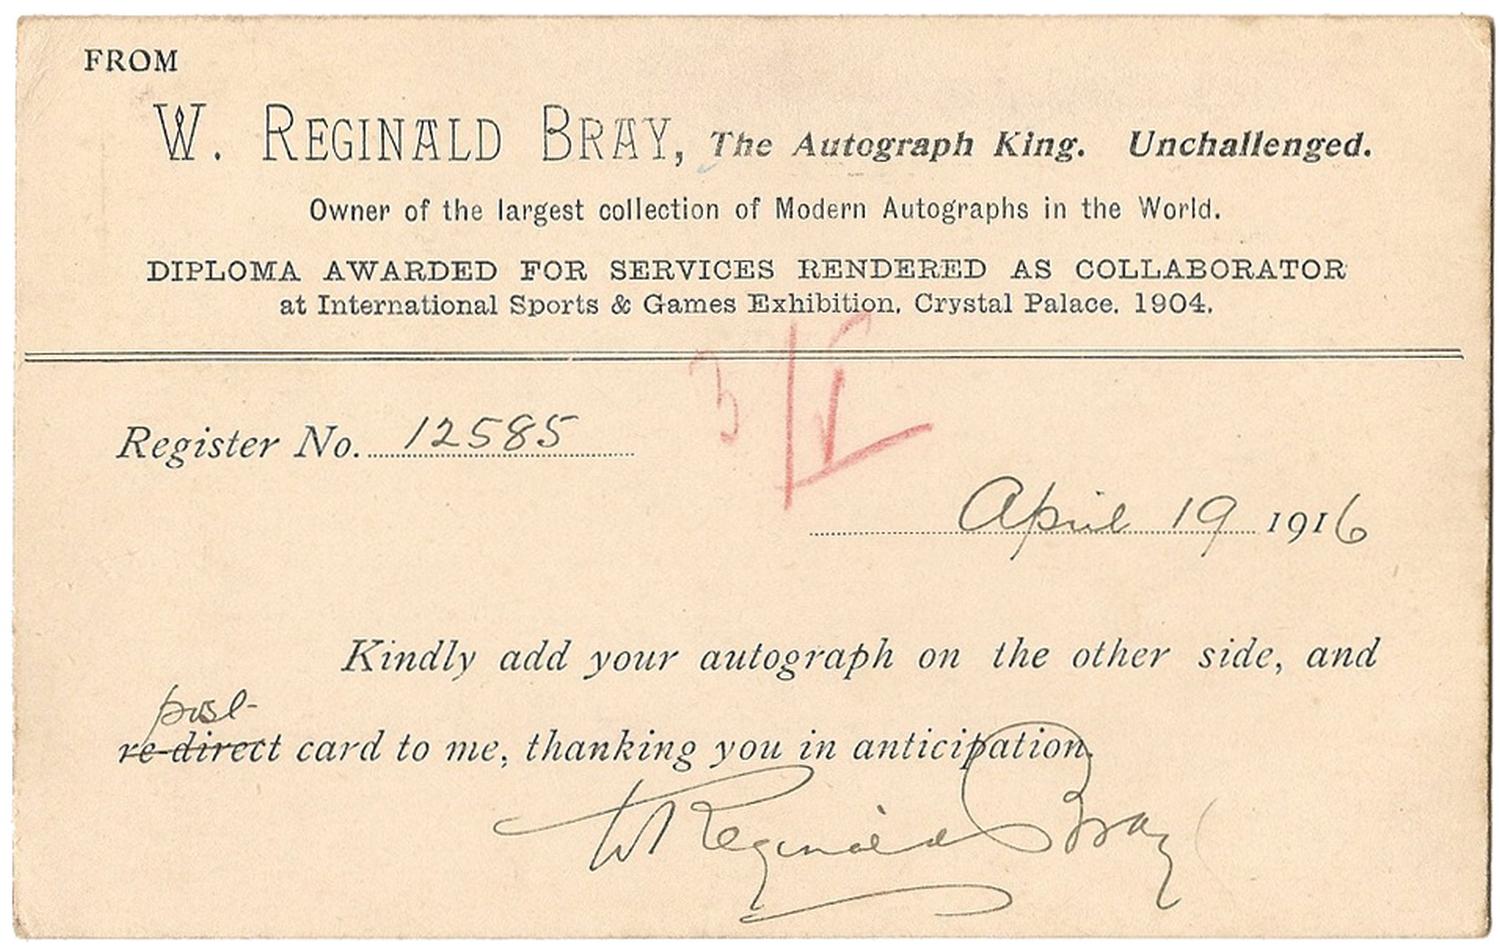 FROM
W. REGINALD BRAY, The Autograph King. Unchallenged.
Owner of the largest collection of Modern Autographs in the World.
DIPLOMA AWARDED FOR SERVICES RENDERED AS COLLABORATOR
at International Sports & Games Exhibition, Crystal Palace. 1904.
Register No. 12585
April 19 1916
Kindly add your autograph on the other side, and
post
re-direct card to me, thanking you in anticipation.
W Reginald Bray